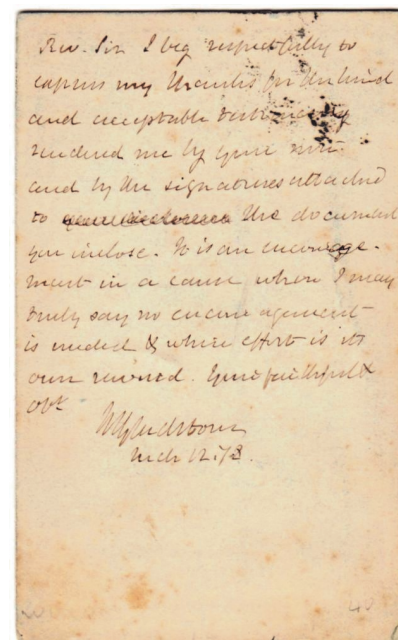 Rev. Sir I beg respectfully to
express my thanks for the kind
and acceptable testimony
rendered me by your note
and by the signatures attached
to the document
you inclose. It is an encourage-
ment in a cause where I may
truly say no encouragement
is needed & where effort is its
own reward. Your faithful &
obt
WEGladstone
Mch 12. 78.